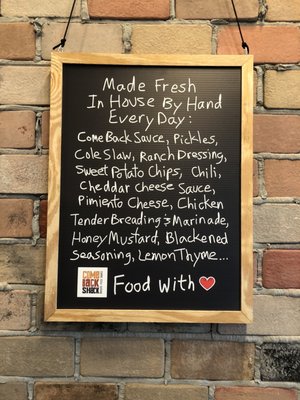 Made Fresh
In House By Hand
Every Day:
Come Back Sauce, Pickles,
Cole Slaw, Ranch Dressing,
Sweet Potato Chips, Chili,
Cheddar Cheese Sauce,
Pimiento Cheese, Chicken
Tender Breading & Marinade,
Honey Mustard, Blackened
Seasoning, Lemon Thyme...
COME
BACK
SHACK
Food With ♥